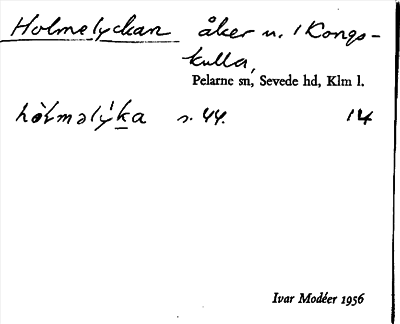 Holmelyckan åker n. 1 Kongs-
kulla,
Pelarne sn, Sevede hd, Klm l.
hòlməlýka s. 44. 14
Ivar Modéer 1956